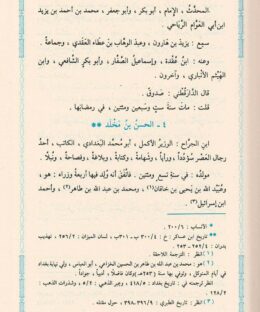 المحدِّث، الإمام، أبو بكر، وأبو جعفر، محمد بن أحمد بن يزيد
ابن أبي العَوَّام الرِّيَاحي
سمع : يزيد بن هارون، وعبد الوهّاب بن عطاء، والعَقَدي، وجماعةً .
وعنه : ابنُ عُقْدة، وإسماعيل الصَّفَّار، وأبو بكر الشَّافعي، وابن
الهَيْثم الأَنْبَاري، وآخرون .
قال الدَّارَقُطْني : صَدُوقٌ .
قلت : ماتَ سنةَ ستٍّ وسبعين ومئتين، في رمضانِها .
٤ - الحسنُ بنُ مَخْلَد **
ابن الجرَّاح : الوزيرُ الأكملُ، أبو محمَّد البَغْدَادي، الكاتب، أحدُ
رجالِ العَصْر سُؤْدداً، ورأياً، وشَهَامةً، وكتابةً، وبلاغةً، وفصاحةً، ونُبلًا .
مولدُه : في سَنةِ تسعٍ ومئتين . فاتَّفق أنه وُلد فيها أربعةُ وزراء : هو،
وعُبَيد الله بن يحيى بن خاقان(١)، ومحمد بن عبد الله بن طاهر(٢)، وأحمد
ابن إسرائيل(٣) .
* الأنساب : ٢٠٠/٦ .
(١) انظر : الترجمة اللاحقة
(٢) هو : محمد بن عبد الله بن طاهر بن الحسين الخزاعي، أبو العباس، ولي نيابة بغداد
في أيام المتوكل، وتوفي بها سنة (٢٥٣)هـ
(٣) انظر : تاريخ الطبري : ٣٩٦/٩، ٣٩٨، حول مقتله .